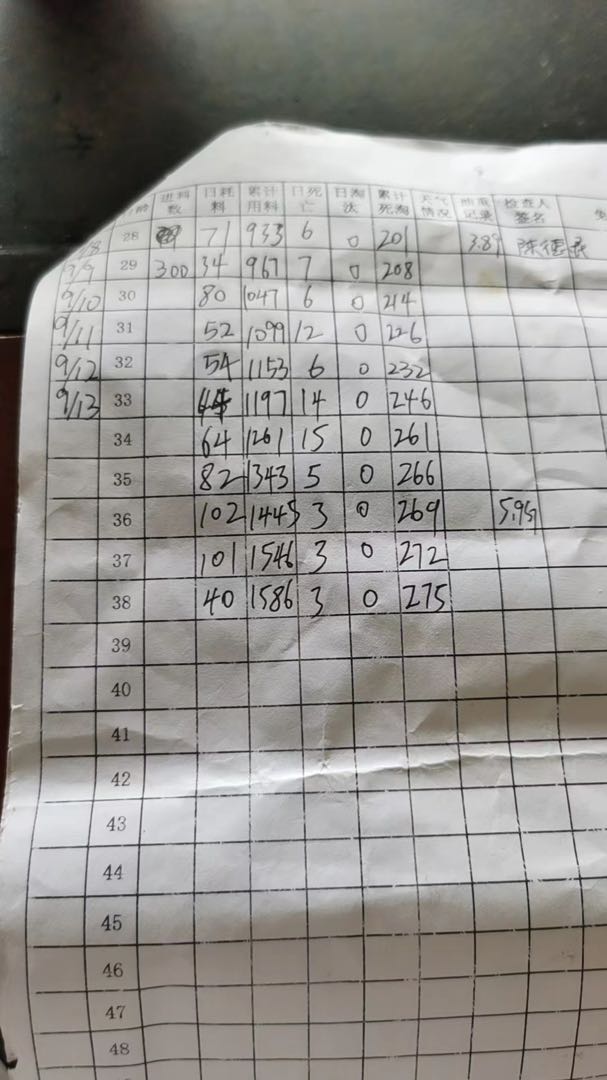 龄 进料数 日耗料 累计用料 日死亡 日淘汰 累计死淘 天气情况 抽重记录 检查人签名
28 71 933 6 0 201 3.89
9/9 29 300 34 967 7 0 208
9/10 30 80 1047 6 0 214
9/11 31 52 1099 12 0 226
9/12 32 54 1153 6 0 232
9/13 33 44 1197 14 0 246
34 64 1261 15 0 261
35 82 1343 5 0 266
36 102 1445 3 0 269
37 101 1546 3 0 272
38 40 1586 3 0 275
39
40
41
42
43
44
45
46
47
48